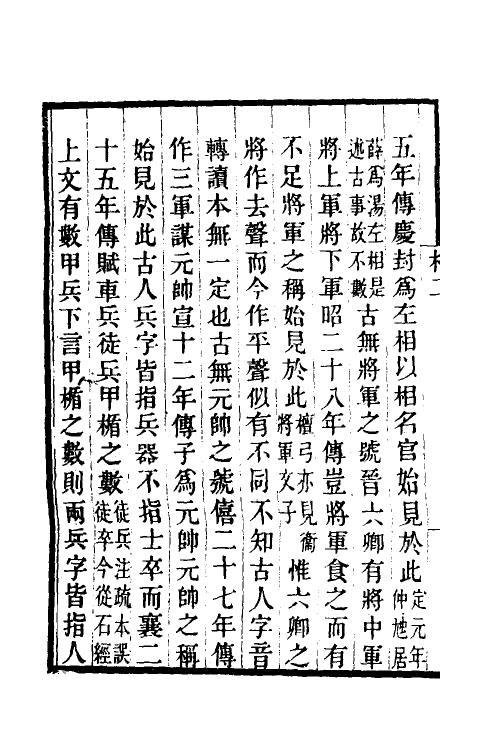 五年傳慶封爲左相以相名官始見於此定元年仲虺居
薛爲湯左相是述古事故不數古無將軍之號晉六卿有將中軍
將上軍將下軍昭二十八年傳豈將軍食之而有
不足將軍之稱始見於此檀弓亦見衞將軍文子惟六卿之
將作去聲而今作平聲似有不同不知古人字音
轉讀本無一定也古無元帥之號僖二十七年傳
作三軍謀元帥宣十二年傳子爲元帥元帥之稱
始見於此古人兵字皆指兵器不指士卒而襄二
十五年傳賦車兵徒兵甲楯之數徒兵注疏本誤徒卒今從石經
上文有數甲兵下言甲楯之數則兩兵字皆指人